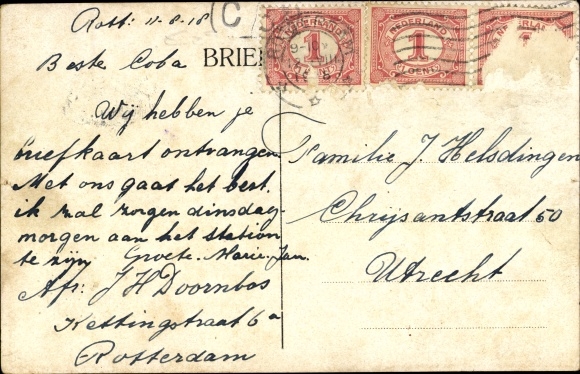 Rott: 11-8-18
Beste Coba
Wij hebben je
briefkaart ontvangen
Met ons gaat het best.
ik zal zorgen dinsdag-
morgen aan het station
te zijn Groete. Marie. Jan.
Afz: J H Doornbos
Kettingstraat 6a
Rotterdam
(C
BRIE
NEDERLAND
1
CENT
NEDERLAND
1
CENT
Familie J. Helsdingen
Chrijsantstraat 50
Utrecht